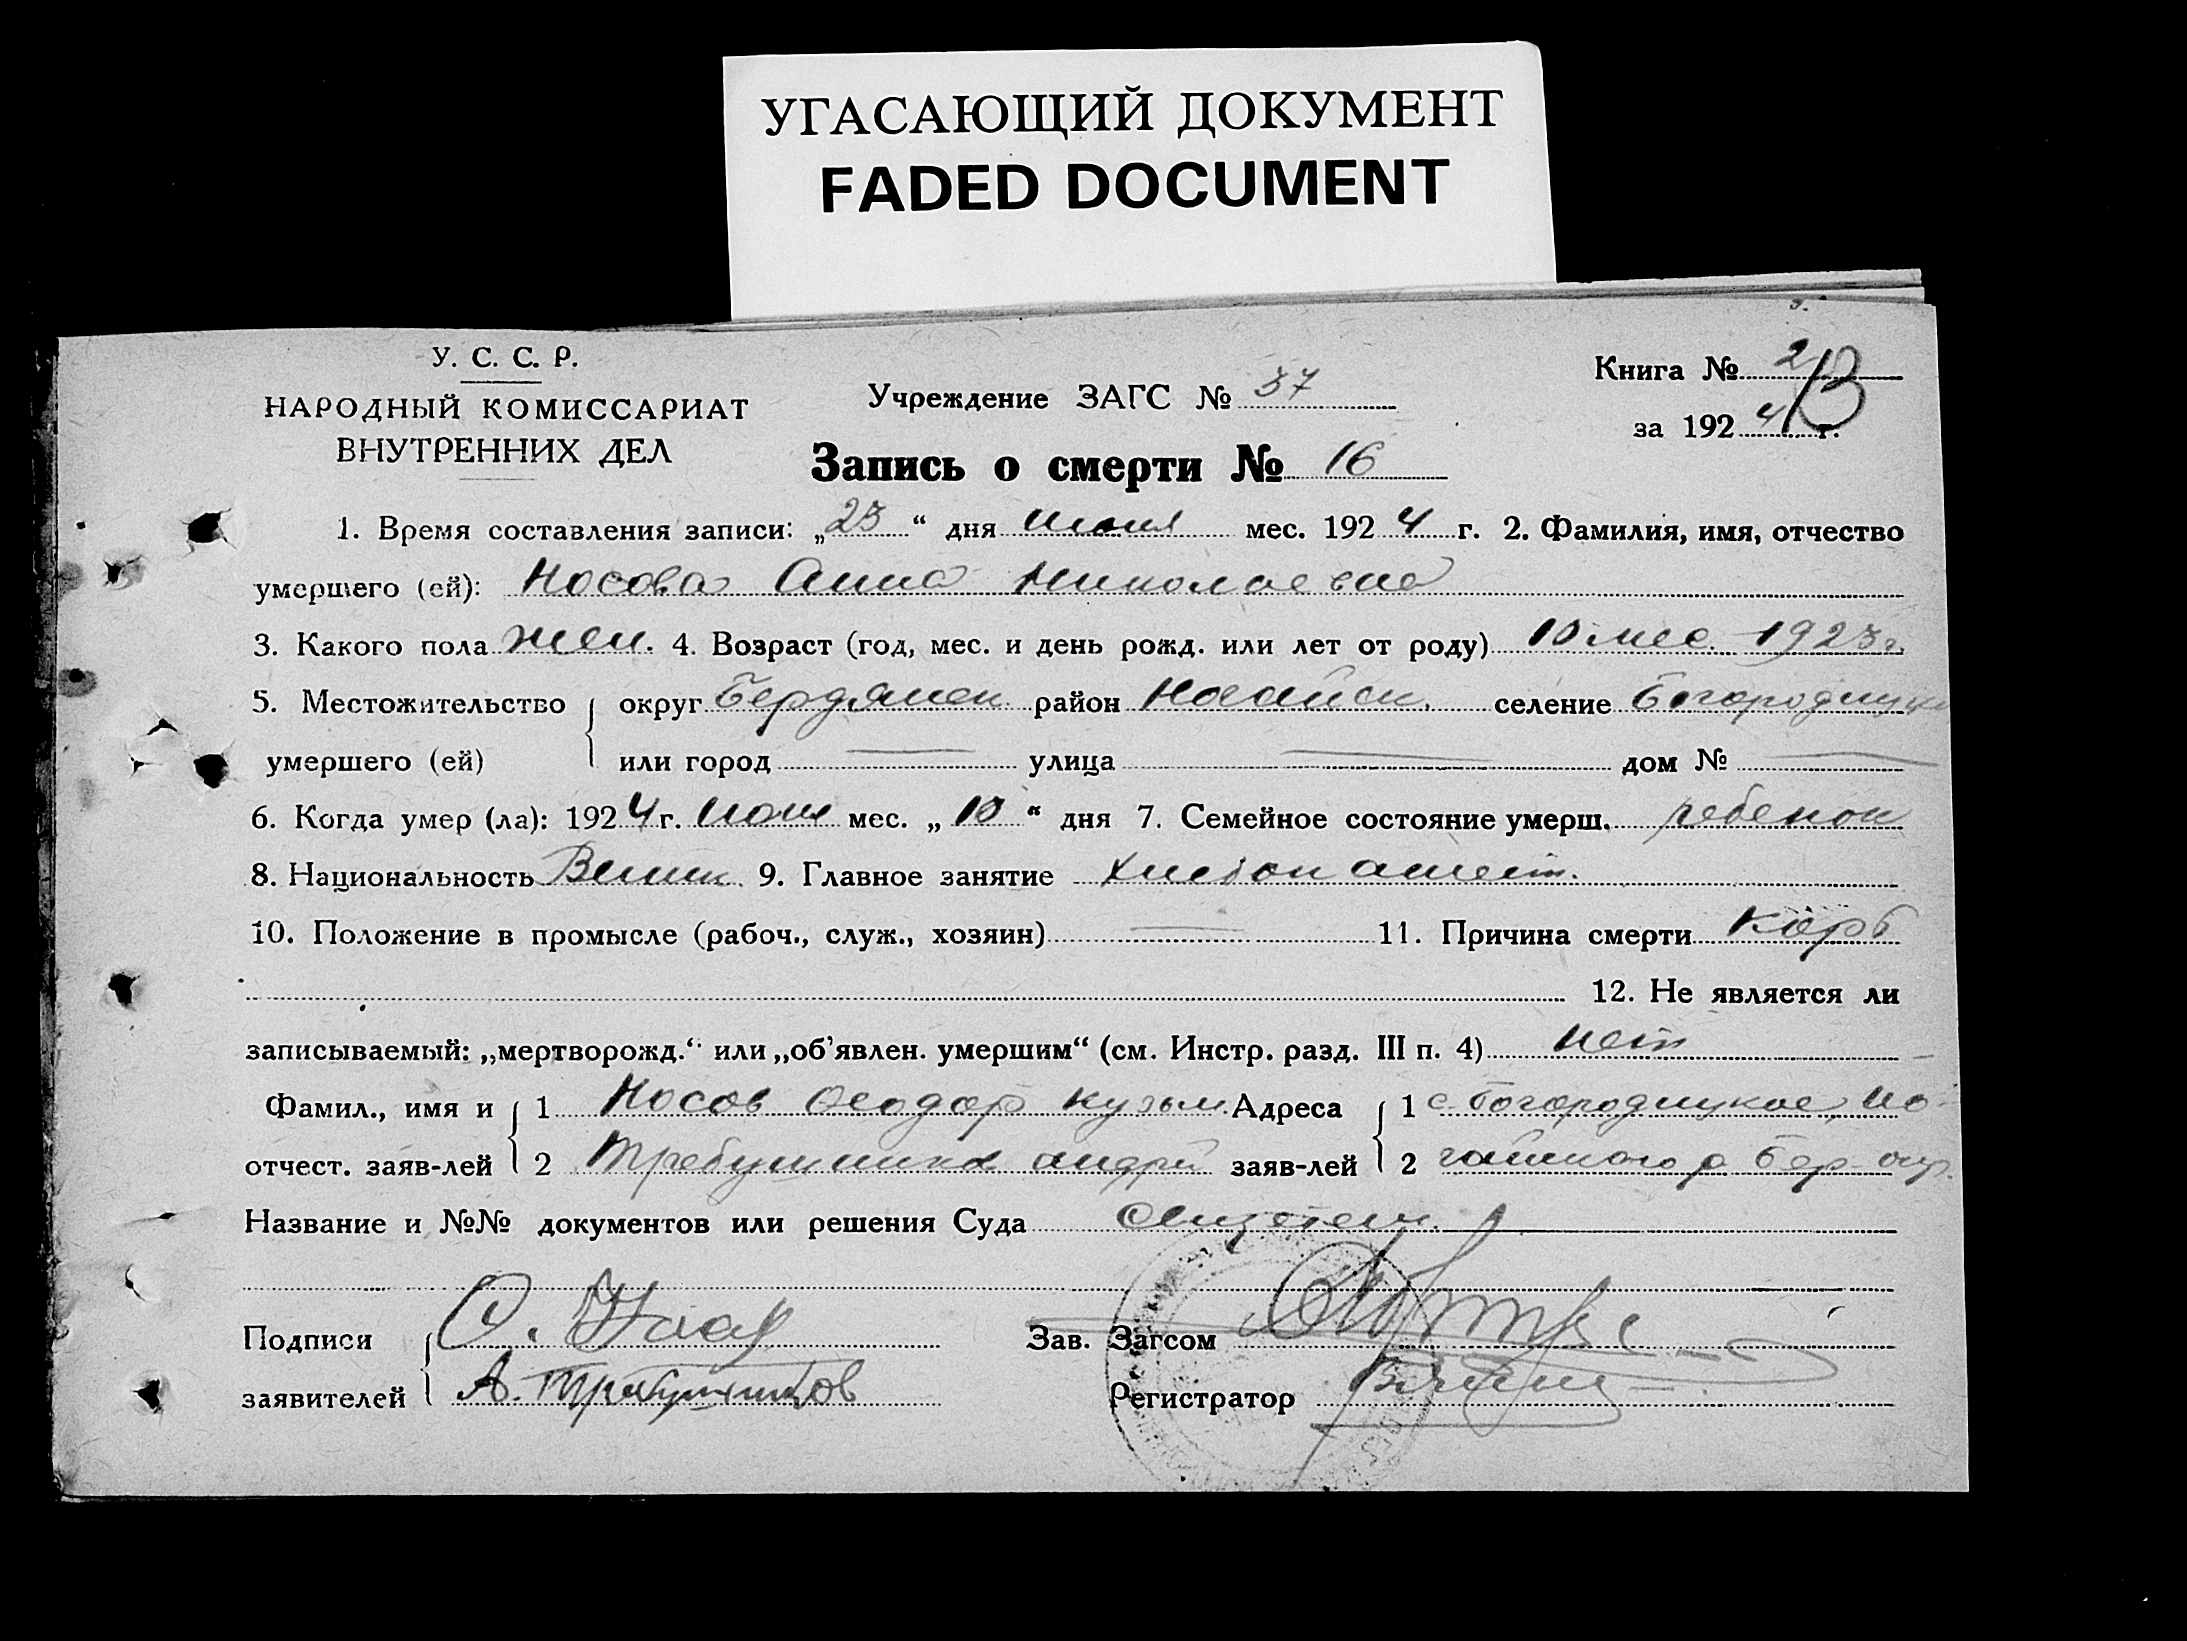 УГАСАЮЩИЙ ДОКУМЕНТ
FADED DOCUMENT
У. С. С. Р.
НАРОДНЫЙ КОМИССАРИАТ
ВНУТРЕННИХ ДЕЛ
Учреждение ЗАГС № 37
Книга № 2
за 1924 г.
Запись о смерти № 16
1. Время составления записи: „23“ дня июня мес. 1924 г. 2. Фамилия, имя, отчество
умершего (ей): Носова Анна Николаевна
3. Какого пола жен. 4. Возраст (год, мес. и день рожд. или лет от роду) 10 мес. 1923 г.
5. Местожительство округ Бердянск район Ногайск. селение Богородицк
умершего (ей) или город — улица — дом № —
6. Когда умер (ла): 1924 г. июня мес. „10“ дня 7. Семейное состояние умерш. ребенок
8. Национальность 9. Главное занятие
10. Положение в промысле (рабоч., служ., хозяин) — 11. Причина смерти Корь
12. Не является ли
записываемый: „мертворожд.“ или „об’явлен. умершим“ (см. Инстр. разд. III п. 4) нет
Фамил., имя и 1 Носов Феодор Кузьм. Адреса 1 с. Богородицкое, Но-
отчест. заяв-лей 2 Андрей заяв-лей 2 гайского р. Бер. окр.
Название и №№ документов или решения Суда
Подписи Зав. Загсом
заявителей А. Требушников Регистратор